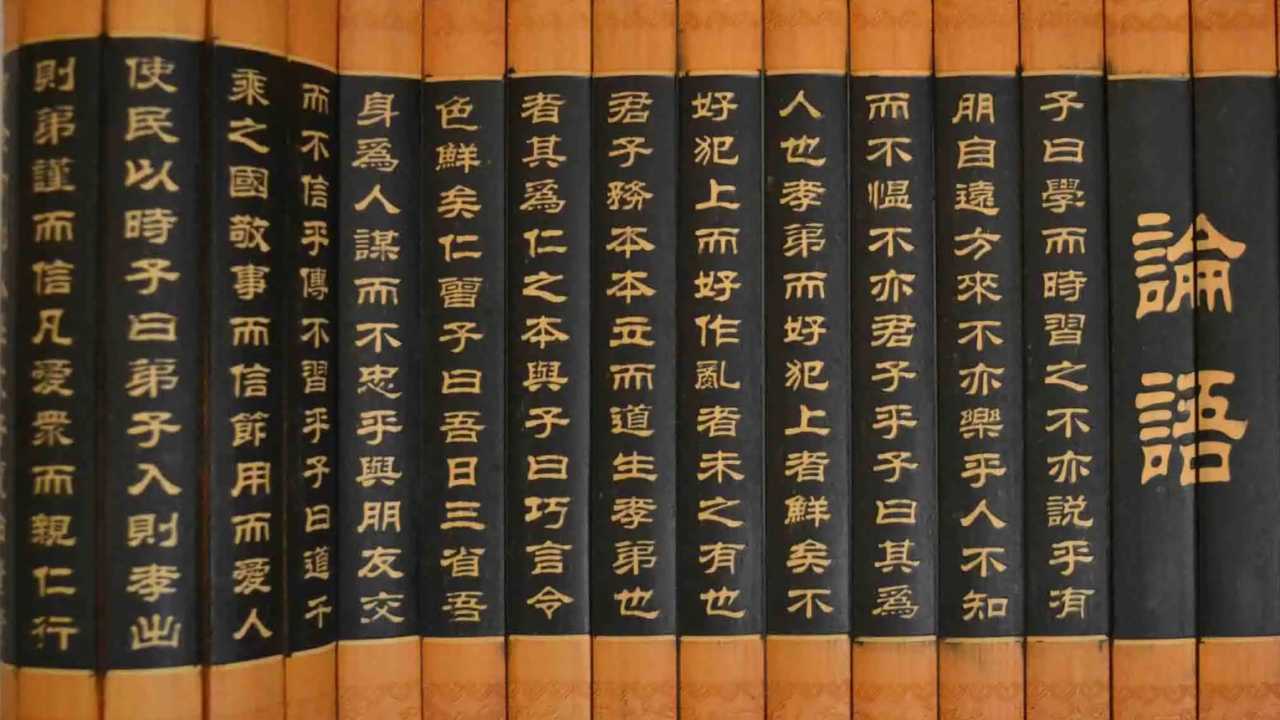 論語
子曰學而時習之不亦說乎有
朋自遠方來不亦樂乎人不知
而不愠不亦君子乎子曰其爲
人也孝弟而好犯上者鮮矣不
好犯上而好作亂者未之有也
君子務本本立而道生孝弟也
者其爲仁之本與子曰巧言令
色鮮矣仁曾子曰吾日三省吾
身爲人謀而不忠乎與朋友交
而不信乎傳不習乎子曰道千
乘之國敬事而信節用而愛人
使民以時子曰弟子入則孝出
則弟謹而信凡愛衆而親仁行